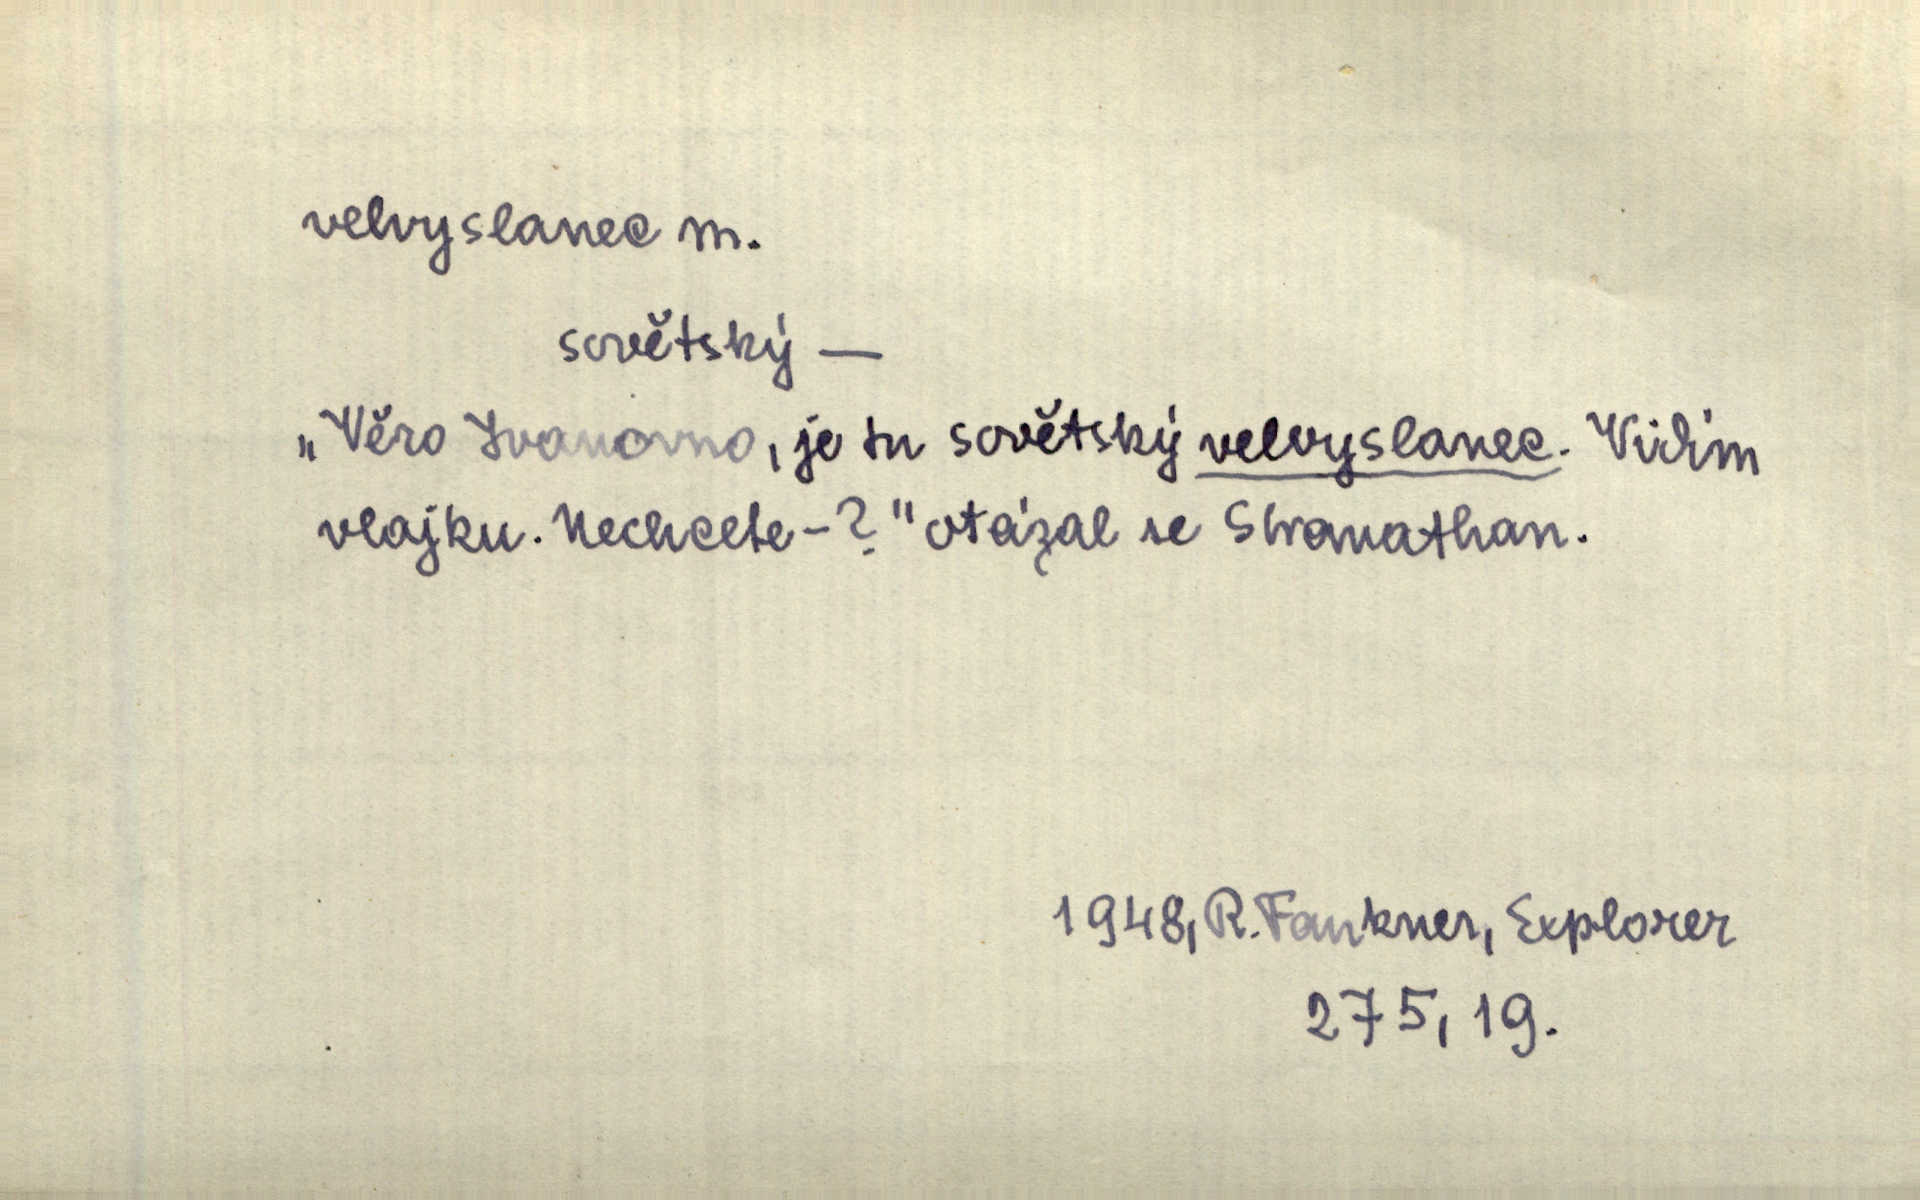 velvyslanec m.
sovětský —
„Věro Ivanovno, je tu sovětský velvyslanec. Vidím
vlajku. Nechcete-?" otázal se Stranathan.
1948, R. Faukner, Explorer
275, 19.